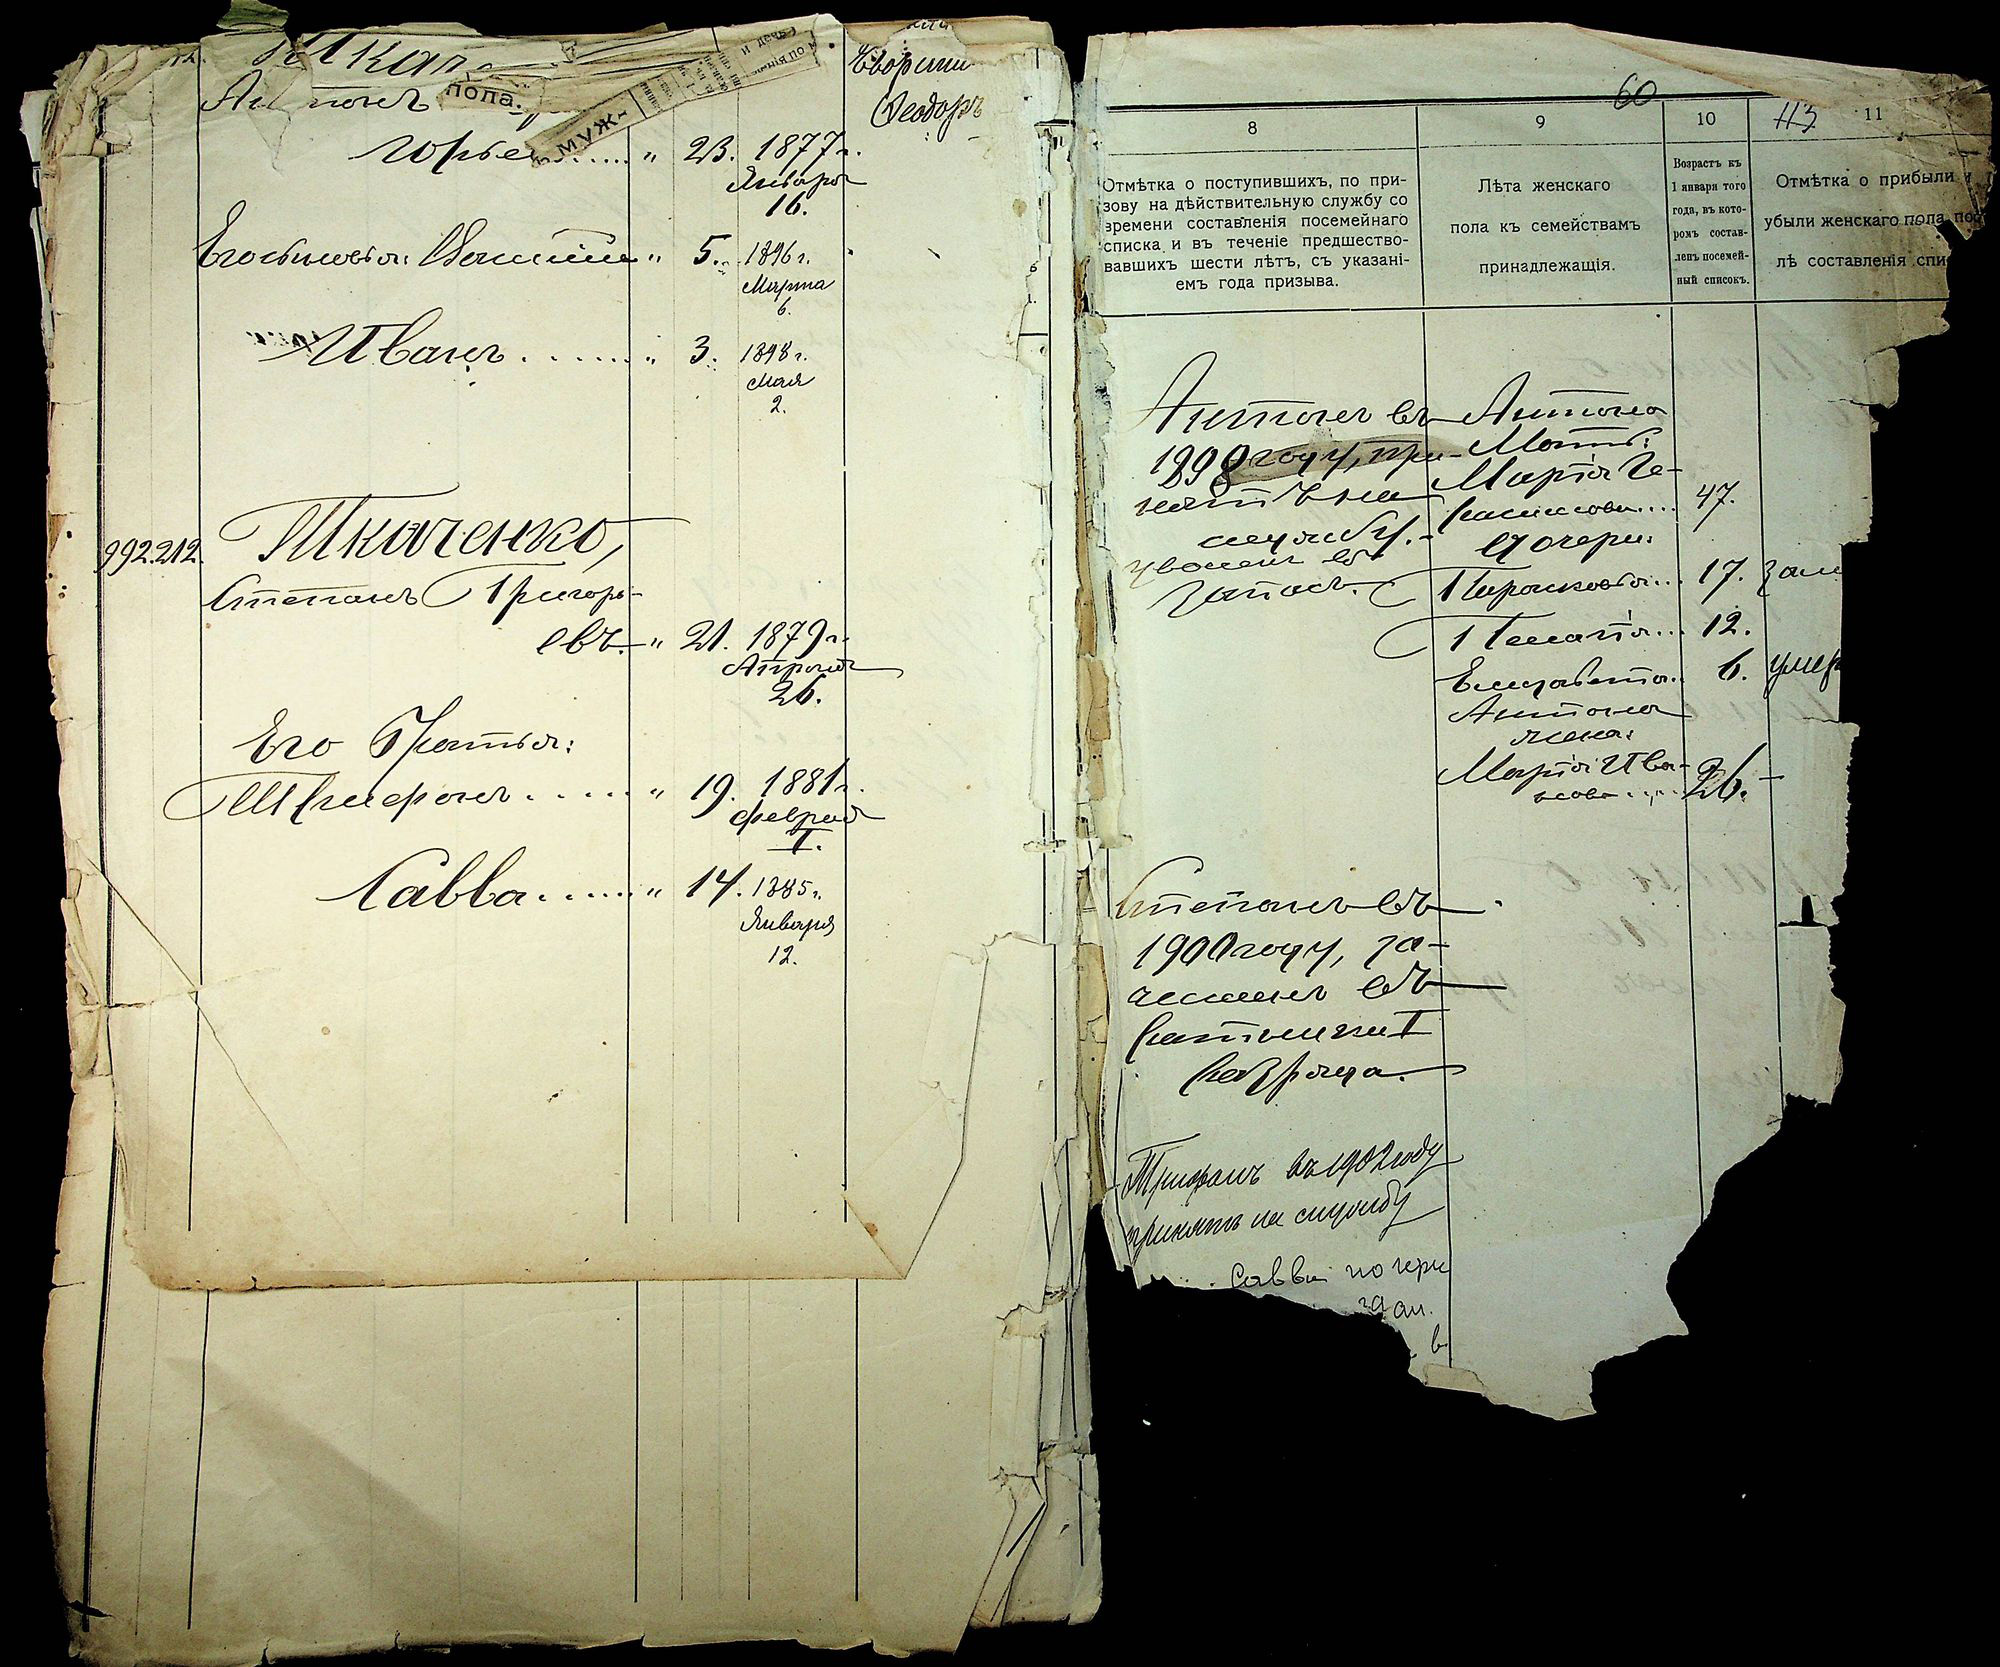 Ткач
Антонъ
пола.
муж-
горьев..... " 23. 1877 г.
Января
16.
Его сыновья: Василій " 5. 1896 г.
Марта
6.
Иванъ....... " 3. 1898 г.
Мая
2.
Ѳеодоръ
992. 212. Ткаченко,
Степанъ Григорь-
евъ. " 21. 1879 г.
Апрѣля
26.
Его Братья:
Трифонъ..... " 19. 1881 г.
Февраля
1.
Савва...... " 14. 1885 г.
Января
12.
60
113
8 9 10 11
Отмѣтка о поступившихъ, по при-
зову на дѣйствительную службу со
времени составленія посемейнаго
списка и въ теченіе предшество-
вавшихъ шести лѣтъ, съ указані-
емъ года призыва.
Лѣта женскаго
пола къ семействамъ
принадлежащія.
Возрастъ къ
1 января того
года, въ кото-
ромъ состав-
ленъ посемей-
ный списокъ.
Отмѣтка о прибыли и
убыли женскаго пола пос
лѣ составленія спи
Антонъ въ
1898 году, при-
нятъ на
службу.-
уволенъ въ
запасъ.
Антона
Мать:
Марія Ге-
расимова.... 47.
Дочери:
Парасковья... 17. зам
Пелагія... 12.
Елизавета.. 6. умер
Антона
жена:
Марія Ива-
нова..... 26. -
Степанъ въ
1900 году, за-
численъ въ
Ратники I
Разряда.
Трифонъ въ 1902 году
принятъ на службу
Савва по чери
зач.
в